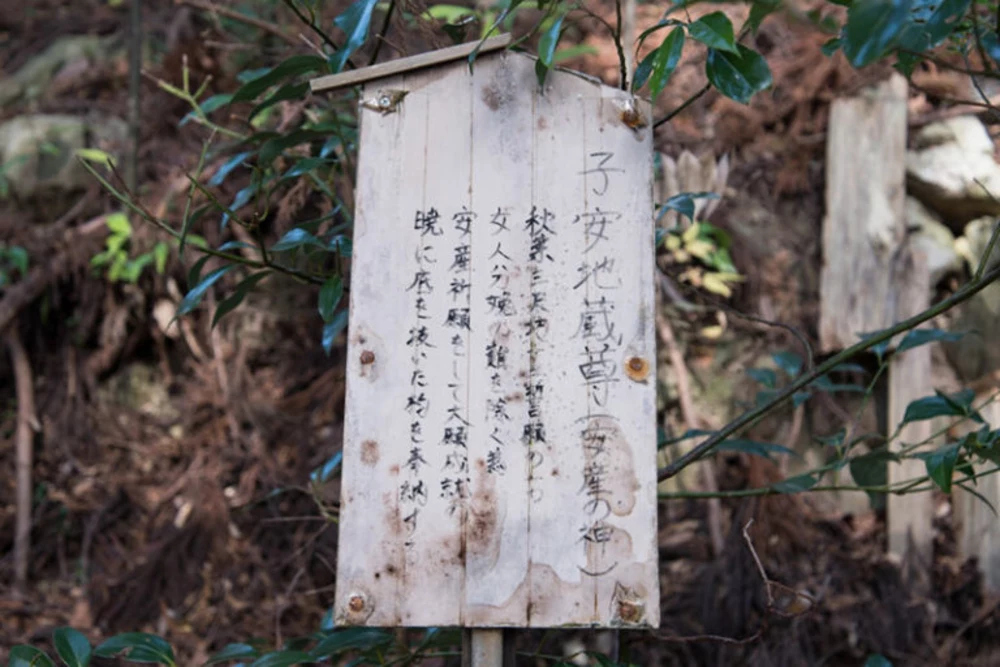 子安地蔵尊(安産の神)
秋葉三尺地十三誓願のつち
女人分娩の難を除く慈
安産祈願をして大願成就の
暁に底を抜いた杓を奉納す